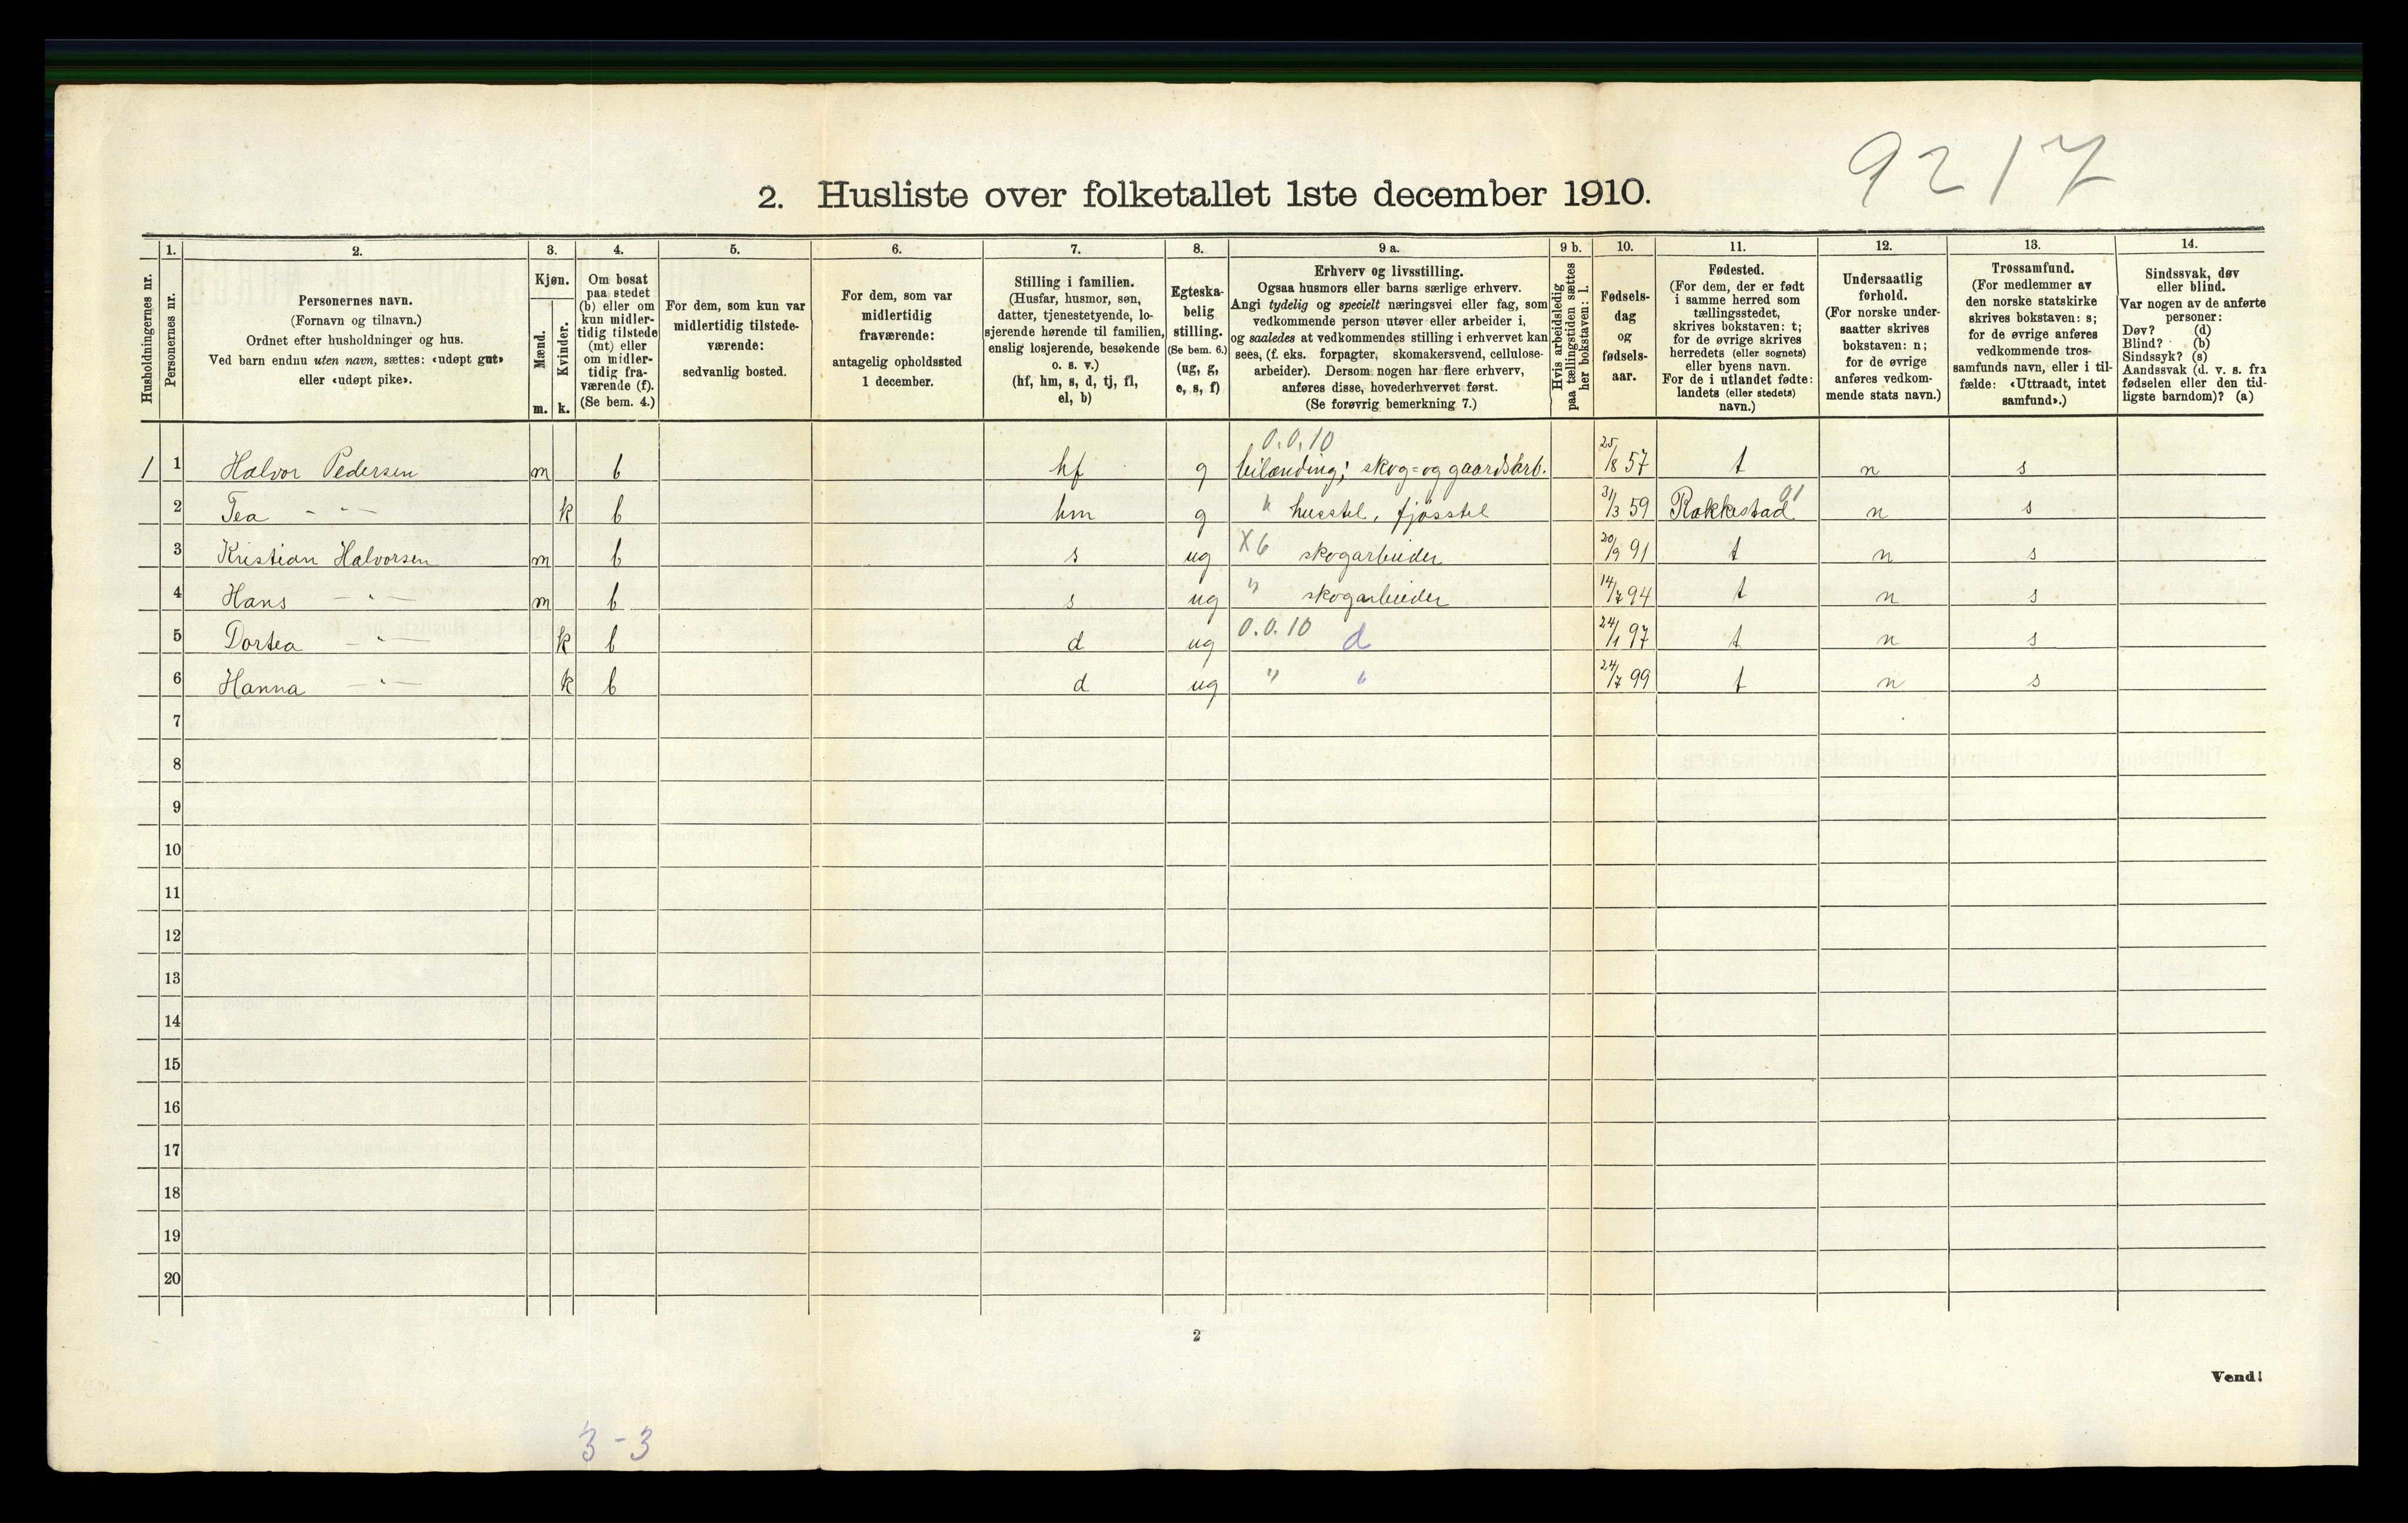 9217
2. Husliste over folketallet 1ste december 1910.
Husholdningernes nr.
1.
Personernes nr.
2.
Personernes navn.
(Fornavn og tilnavn.)
Ordnet efter husholdninger og hus.
Ved barn endnu uten navn, sættes: «udøpt gut»
eller «udøpt pike».
3.
Kjøn.
Mænd.
Kvinder.
m. k.
4.
Om bosat
paa stedet
(b) eller om
kun midler-
tidig tilstede
(mt) eller
om midler-
tidig fra-
værende (f).
(Se bem. 4.)
5.
For dem, som kun var
midlertidig tilstede-
værende:
sedvanlig bosted.
6.
For dem, som var
midlertidig
fraværende:
antagelig opholdssted
1 december.
7.
Stilling i familien.
(Husfar, husmor, søn,
datter, tjenestetyende, lo-
sjerende hørende til familien,
enslig losjerende, besøkende
o. s. v.)
(hf, hm, s, d, tj, fl,
el, b)
8.
Egteska-
belig
stilling.
(Se bem. 6.)
(ug, g,
e, s, f)
9 a.
Erhverv og livsstilling.
Ogsaa husmors eller barns særlige erhverv.
Angi tydelig og specielt næringsvei eller fag, som
vedkommende person utøver eller arbeider i,
og saaledes at vedkommendes stilling i erhvervet kan
sees, (f. eks. forpagter, skomakersvend, cellulose-
arbeider). Dersom nogen har flere erhverv,
anføres disse, hovederhvervet først.
(Se forøvrig bemerkning 7.)
9 b.
Hvis arbeidsledig
paa tællingstiden sættes
her bokstaven: l.
10.
Fødsels-
dag
og
fødsels-
aar.
11.
Fødested.
(For dem, der er født
i samme herred som
tællingsstedet,
skrives bokstaven: t;
for de øvrige skrives
herredets (eller sognets)
eller byens navn.
For de i utlandet fødte:
landets (eller stedets)
navn.)
12.
Undersaatlig
forhold.
(For norske under-
saatter skrives
bokstaven: n;
for de øvrige
anføres vedkom-
mende stats navn.)
13.
Trossamfund.
(For medlemmer av
den norske statskirke
skrives bokstaven: s;
for de øvrige anføres
vedkommende tros-
samfunds navn, eller i til-
fælde: «Uttraadt, intet
samfund».)
14.
Sindssvak, døv
eller blind.
Var nogen av de anførte
personer:
Døv? (d)
Blind? (b)
Sindssyk? (s)
Aandssvak (d. v. s. fra
fødselen eller den tid-
ligste barndom)? (a)
0.0.10
1 1 Halvor Pedersen m b hf g skog= og gaardsarb. 25/8 57 t n s
2 Tea - " - k b hm g " husstel, fjøsstel 31/3 59 Rakkestad 01 n s
3 Kristian Halvorsen m b s ug X6 skogarbeider 20/9 91 t n s
4 Hans - " - m b s ug " skogarbeider 14/7 94 t n s
5 Dortea - " - k b d ug 0.0.10 d 24/1 97 t n s
6 Hanna - " - k b d ug " " 24/7 99 t n s
7
8
9
10
11
12
13
14
15
16
17
18
19
20
2
Vend!
3-3